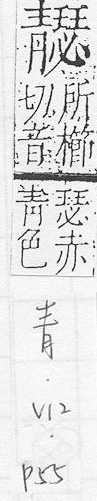 所櫛
切音
瑟赤
青色
青
.
V12
.
P55